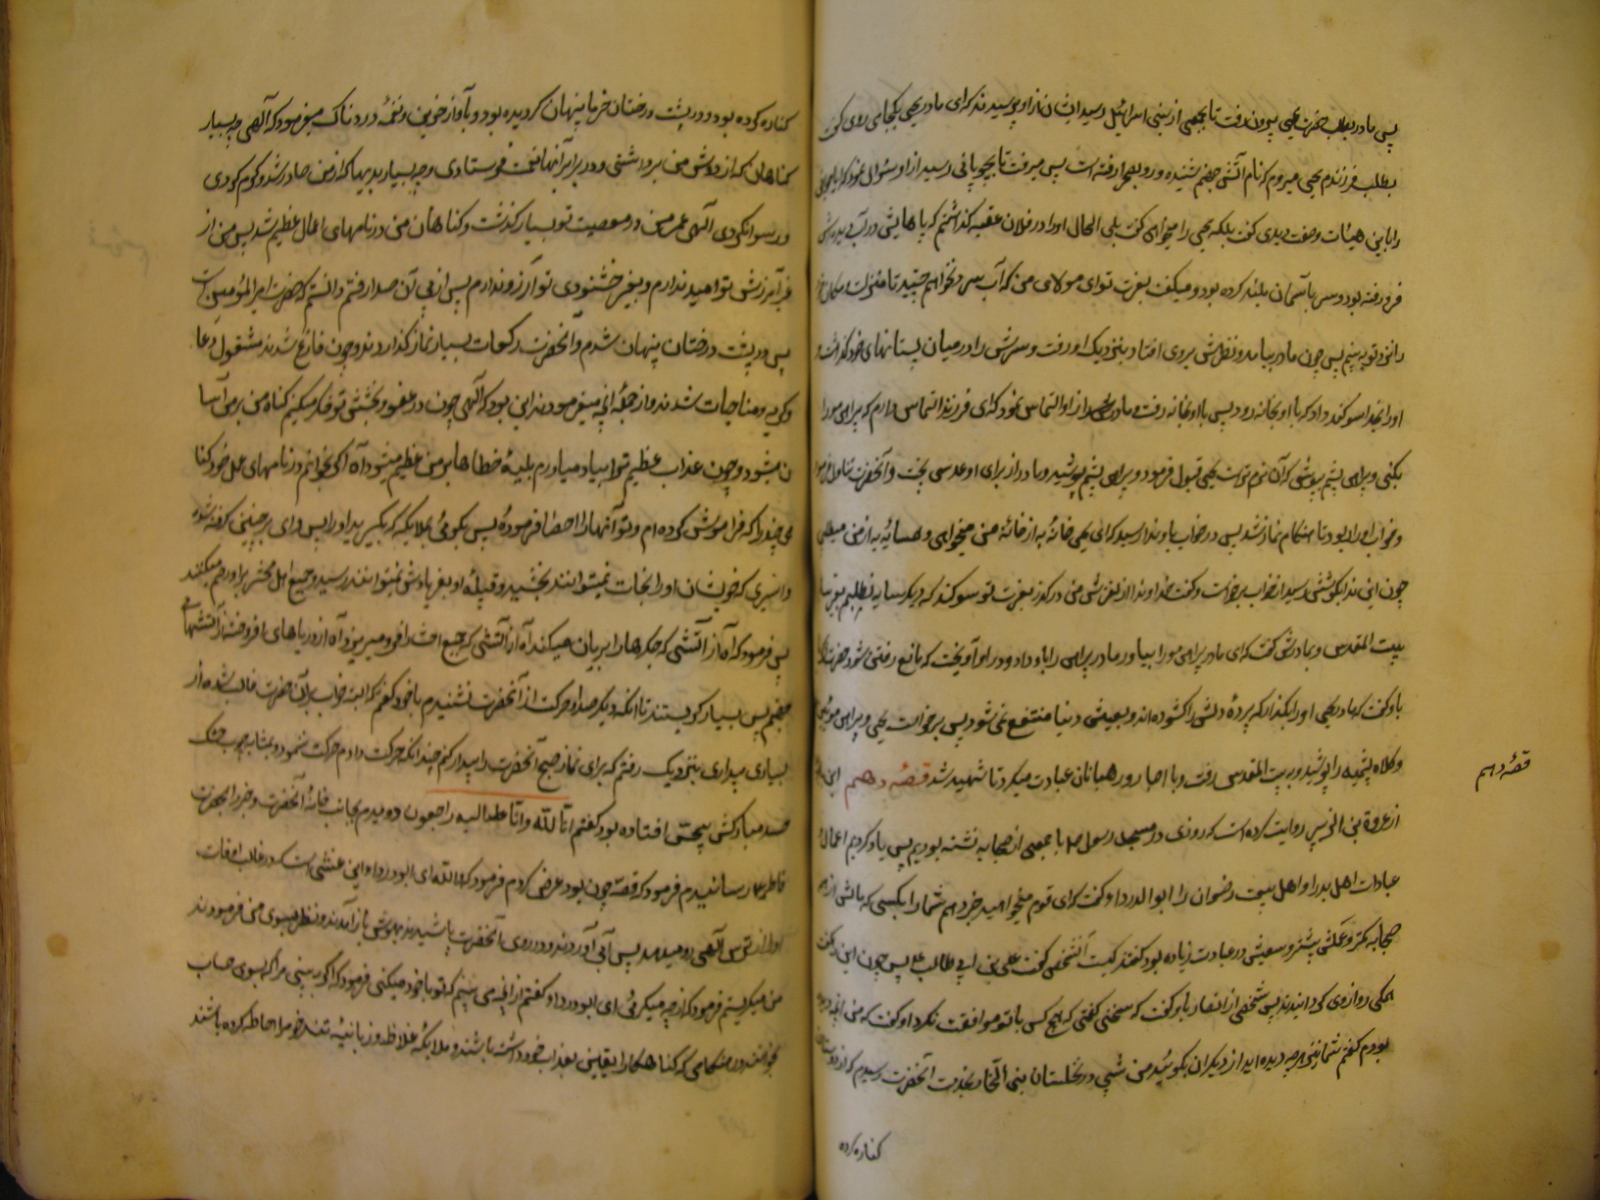 پس مادر بطلب حضرت یحیی بیرون رفت تا بجمعی از بنی اسرائیل رسید ایشان از او پرسیدند که ای مادر یحیی بکجا روی گفت
بطلب فرزندم یحیی میروم که نام آتش جهنم شنیده و رو بصحرا رفته است پس میرفت تا بچوپانی رسید از او سئوال نمود که ایا جوانی
را باین هیئات و صفت دیدی گفت بلکه یحیی را میخواهی گفت بلی الحال او را در فلان عقبه گذاشتم که پاهایش در آب دیده اش
فرو رفته بود و سر بآسمان بلند کرده بود و میگفت بعزت تو ای مولای من که آب سرد نخواهم چشید تا منزلت و مکان خود
را نزد تو به بینم پس چون مادر بیامد و نظرش بروی افتاد بنزدیک او رفت و سرش را در میان پستانهای خود گذاشت و
او را بخدا سوگند داد که با او بخانه رود پس با او بخانه رفت و مادرش از او التماس نمود که ای فرزند التماس دارم که پیراهن مو را
بکنی و پیراهن پشم بپوشی که آن نرم تر است یحیی قبول فرمود و پیراهن پشم پوشید و مادر از برای او عدسی پخت و آنحضرت تناول فرمود
و خواب او را ربود تا هنگام نماز شد پس در خواب باو ندا رسید که ای یحیی خانهٔ به از خانهٔ من میخواهی و همسایهٔ به از من میطلبی
چون این ندا بگوشش رسید از خواب برخاست و گفت خداوندا از لغزش من درگذر بعزت تو سوگند که دیگر سایه نطلبم بغیر سایهٔ
بیت المقدس و بمادرش گفت که ای مادر پیراهن مو را بیاور مادر پیراهن را باو داد و در او آویخت که مانع رفتن شود حضرت زکریا
باو گفت که مادر یحیی او را بگذار که پردهٔ دلش را گشوده اند و بعیش دنیا منتفع نمی شود پس برخاست یحیی و پیراهن موئین
و کلاه پشمینه را پوشید و به بیت المقدس رفت و با احبار و رهبانان عبادت میکرد تا شهید شد قصهٔ دهم
قصهٔ دهم
از عروة بن الزبیر روایت کرده است که روزی در مسجد رسول ص با جمعی از صحابه نشسته بودیم پس یاد کردیم اعمال و
عبادات اهل بدر را و اهل بیعت رضوان را ابو الدرداء گفت که ای قوم میخواهید خبر دهم شما را بکسی که مالش از همه
صحابه کمتر و عملش بیشتر و سعیش در عبادت زیاده بود گفتند کیست آنشخص گفت علی بن ابی طالب ع پس چون این را گفت
همگی رو از وی گردانیدند پس شخصی از انصار باو گفت که سخنی گفتی که هیچ کس با تو موافقت نکرد او گفت که من آنچه دیده
بودم گفتم شما نیز هرچه دیده اید از دیگران بگوئید من شبی در نخلستان بنی النجار بخدمت آنحضرت رسیدم که از دوستان
کناره کرده
کناره کرده بود و در پشت درختان خرما پنهان گردیده بود و بآواز حزین و نغمهٔ دردناک میفرمود که الهی چه بسیار
گناهان که از دوش من برداشتی و در برابر آنها نعمت فرستادی و چه بسیار بدیها که از من صادر شد و کرم کردی
و رسوا نکردی الهی عمر من در معصیت تو بسیار گذشت و گناهان من در نامهای اعمال عظیم شد پس من از
غیر آمرزش تو امید ندارم و بغیر خشنودی تو آرزو ندارم پس از پی آن صدا رفتم دانستم که حضرت امیر المؤمنین است
پس در پشت درختان پنهان شدم و آنحضرت رکعات بسیار نماز گذاردند و چون فارغ شدند مشغول دعا
و گریه و مناجات شدند و از جمله آنچه میفرمودند این بود که الهی چون در عفو و بخشش تو فکر میکنم گناه من بر من آسا
ن میشود و چون عذاب عظیم تو را بیاد میاورم بلیهٔ خطاها بر من عظیم میشود آه اگر بخوانم در نامهای عمل خود گنا
هی چند را که فراموش کرده ام و تو آنها را احصا فرمودهٔ پس بگوئی بملائکه که بگیرید او را پس وای بر چنین گرفته شده
و اسیری که خویشان او را نجات نمیتوانند بخشید و قبیلهٔ او بفریادش نمیتوانند رسید و جمیع اهل محشر بر او رحم میکنند
پس فرمود که آه از آتشی که جگرها را بریان میکند آه از آتشی که جمیع اعضا را فرو میریزد آه از دریاهای افروخته از آتشهای
جهنم پس بسیار گریستند تا آنکه دیگر صدا و حرکت از آنحضرت نشنیدم با خود گفتم که البته خواب بر آن حضرت غالب شده از
بسیاری بیداری بنزدیک رفتم که برای نماز صبح آنحضرت را بیدار کنم چندانکه حرکت دادم حرکت ننمود و بمثابه چوب خشک
جسد مبارکش بیحس افتاده بود گفتم انا لله و انا الیه راجعون دویدم بجانب خانهٔ آنحضرت و خبر را بحضرت
فاطمه ع رسانیدم فرمود که قصه چون بود عرض کردم فرمود که والله ای ابو درداء این غشی است که در غالب اوقات
او را از ترس الهی رو میدهد پس آبی آوردند و بر روی آنحضرت پاشیدند بهوش باز آمدند و نظر بسوی من فرمودند
من میگریستم فرمود که از چه میگرئی ای ابو درداء گفتم از آنچه می بینم که تو با خود میکنی فرمود که اگر به بینی مرا که بسوی حساب
بخوانند در هنگامی که گناهکاران یقین بعذاب خود داشته باشند و ملائکهٔ غلاظ و زبانیهٔ تندخو مرا احاطه کرده باشند